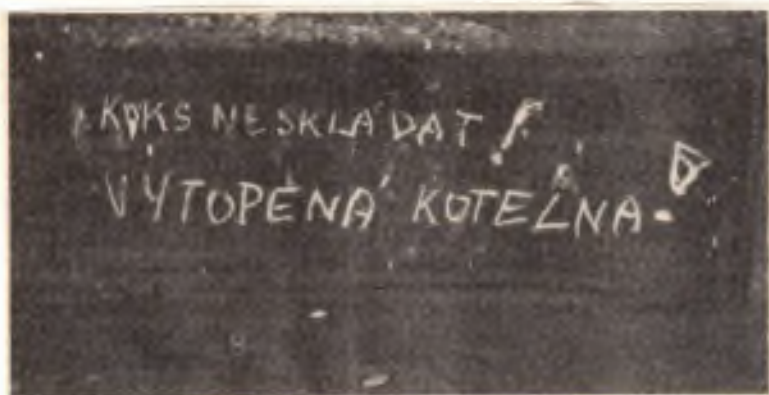 KOKS NESKLÁDAT!
VYTOPENÁ KOTELNA.